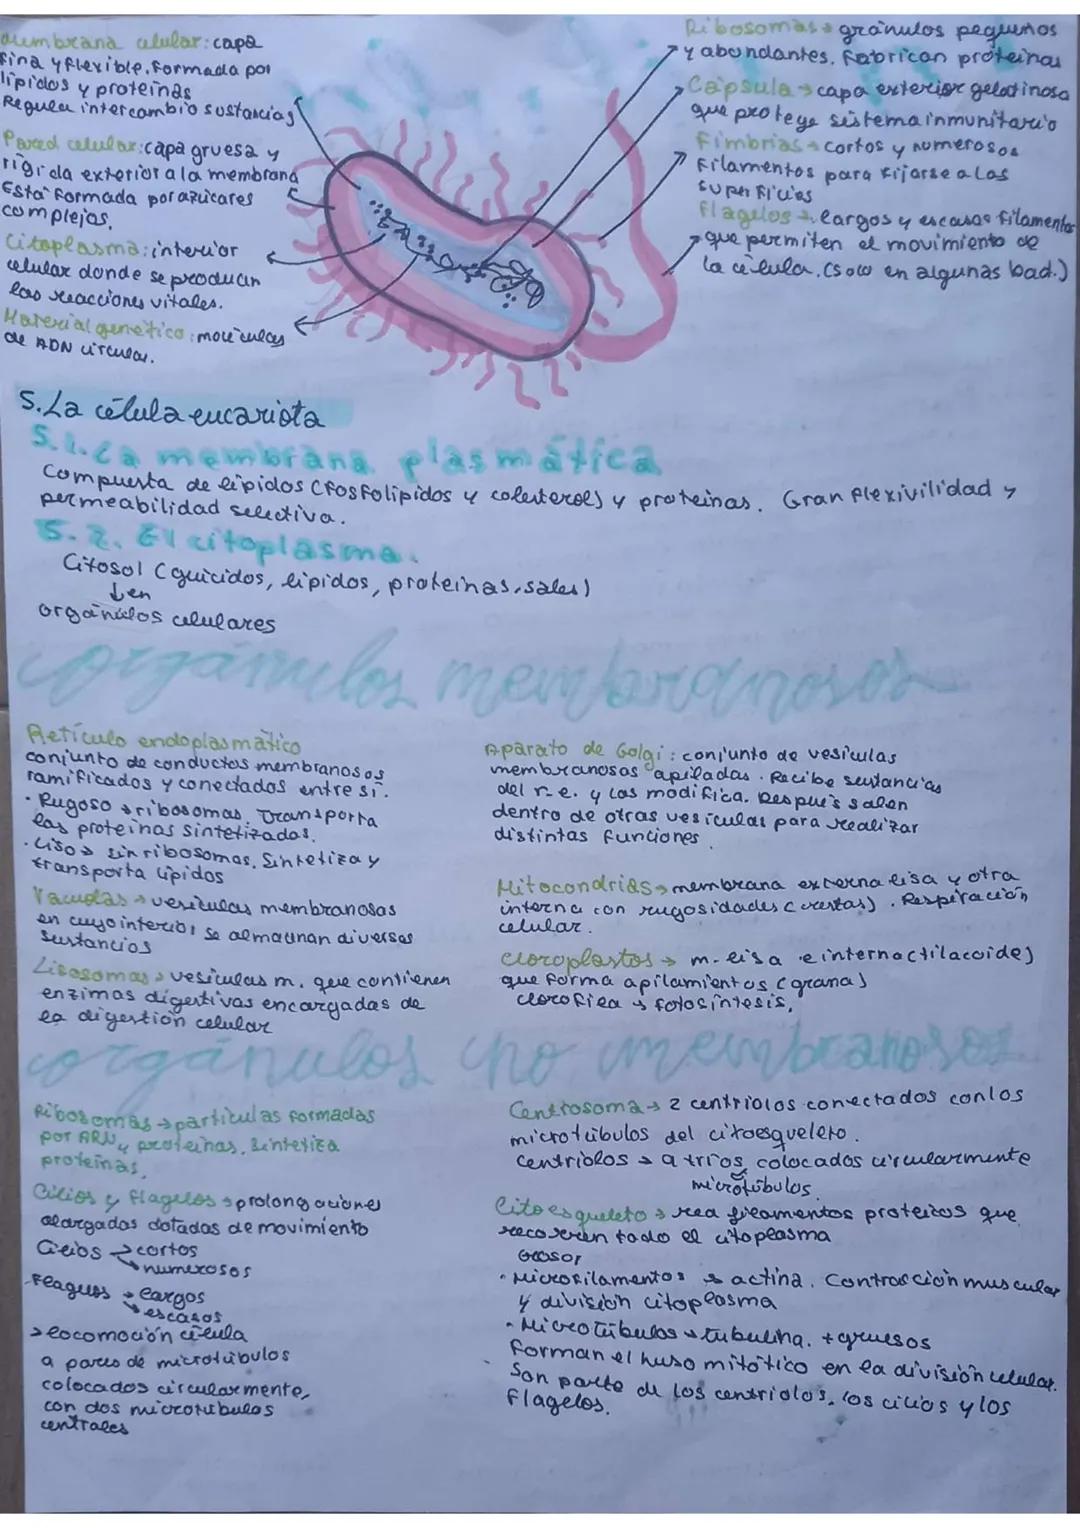 Membrana celular: capa
fina y flexible. Formada por
lípidos y proteínas
Regula intercambio sustancias
Pared celular: capa gruesa y
rígida exterior a la membrana
Está formada por azúcares
complejas.
Citoplasma: interior
celular donde se producen
las reacciones vitales.
Material genético: moléculas
de ADN circular.
Ribosomas → gránulos pequeños
y abundantes. Fabrican proteínas
Cápsula → capa exterior gelatinosa
que protege sistema inmunitario
Fimbrias → cortos y numerosos
filamentos para fijarse a las
superficies
Flagelos → largos y escasos filamentos
que permiten el movimiento de
la célula. (solo en algunas bad.)
5. La célula eucariota
5.1. La membrana plasmática
Compuesta de lípidos (fosfolípidos y colesterol) y proteínas. Gran flexivilidad y
permeabilidad selectiva.
5.2. El citoplasma.
Citosol (glúcidos, lípidos, proteínas, sales)
↓ en
orgánulos celulares
orgánulos membranosos
Retículo endoplasmático
conjunto de conductos membranosos
ramificados y conectados entre sí.
· Rugoso → ribosomas. Transporta
las proteínas sintetizadas.
· Liso → sin ribosomas. Sintetiza y
transporta lípidos
Vacuolas → vesículas membranosas
en cuyo interior se almacenan diversas
sustancias
Lisosomas → vesículas m. que contienen
enzimas digestivas encargadas de
la digestión celular
Aparato de Golgi: conjunto de vesículas
membranosas apiladas. Recibe sustancias
del r.e. y las modifica. Después salen
dentro de otras vesículas para realizar
distintas funciones.
Mitocondrias → membrana externa lisa y otra
interna con rugosidades (crestas). Respiración
celular.
Cloroplastos → m. lisa e interna (tilacoide)
que forma apilamientos (grana)
clorofila → fotosíntesis.
orgánulos no membranosos
Ribosomas → partículas formadas
por ARN y proteínas. Sintetiza
proteínas.
Cilios y flagelos → prolongaciones
alargadas dotadas de movimiento
Cilios → cortos
→ numerosos
Flagelos → largos
→ escasos
→ locomoción célula
9 pares de microtúbulos
colocados circularmente,
con dos microtúbulos
centrales
Centrosoma → 2 centriolos conectados con los
microtúbulos del citoesqueleto.
centriolos → 9 tríos colocados circularmente
microtúbulos
Citoesqueleto → red filamentos proteicos que
recorren todo el citoplasma
Grosor
· Microfilamentos → actina. Contracción muscular
y división citoplasma
· Microtúbulos → tubulina. + gruesos
Forman el huso mitótico en la división celular.
Son parte de los centriolos, los cilios y los
flagelos.